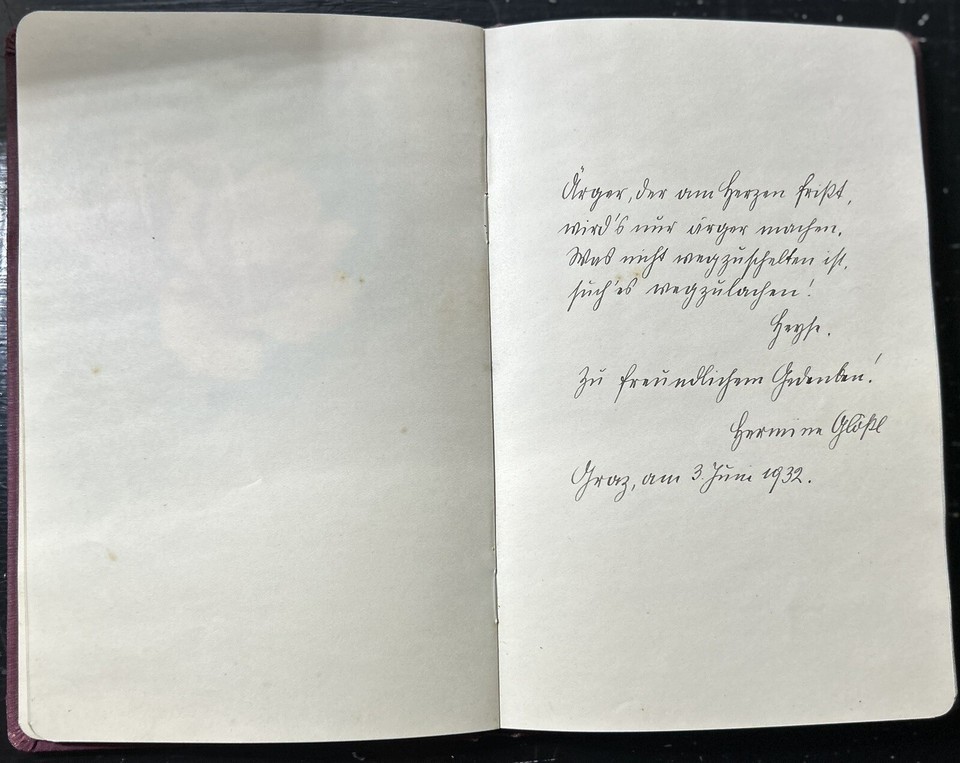 Ärger, der am Herzen frißt,
wird's nur ärger machen.
Was nicht wegzuschelten ist,
such' es wegzulachen!
Heyse.
Zu freundlichem Gedenken!
Hermine Glößl
Graz, am 3. Juni 1932.